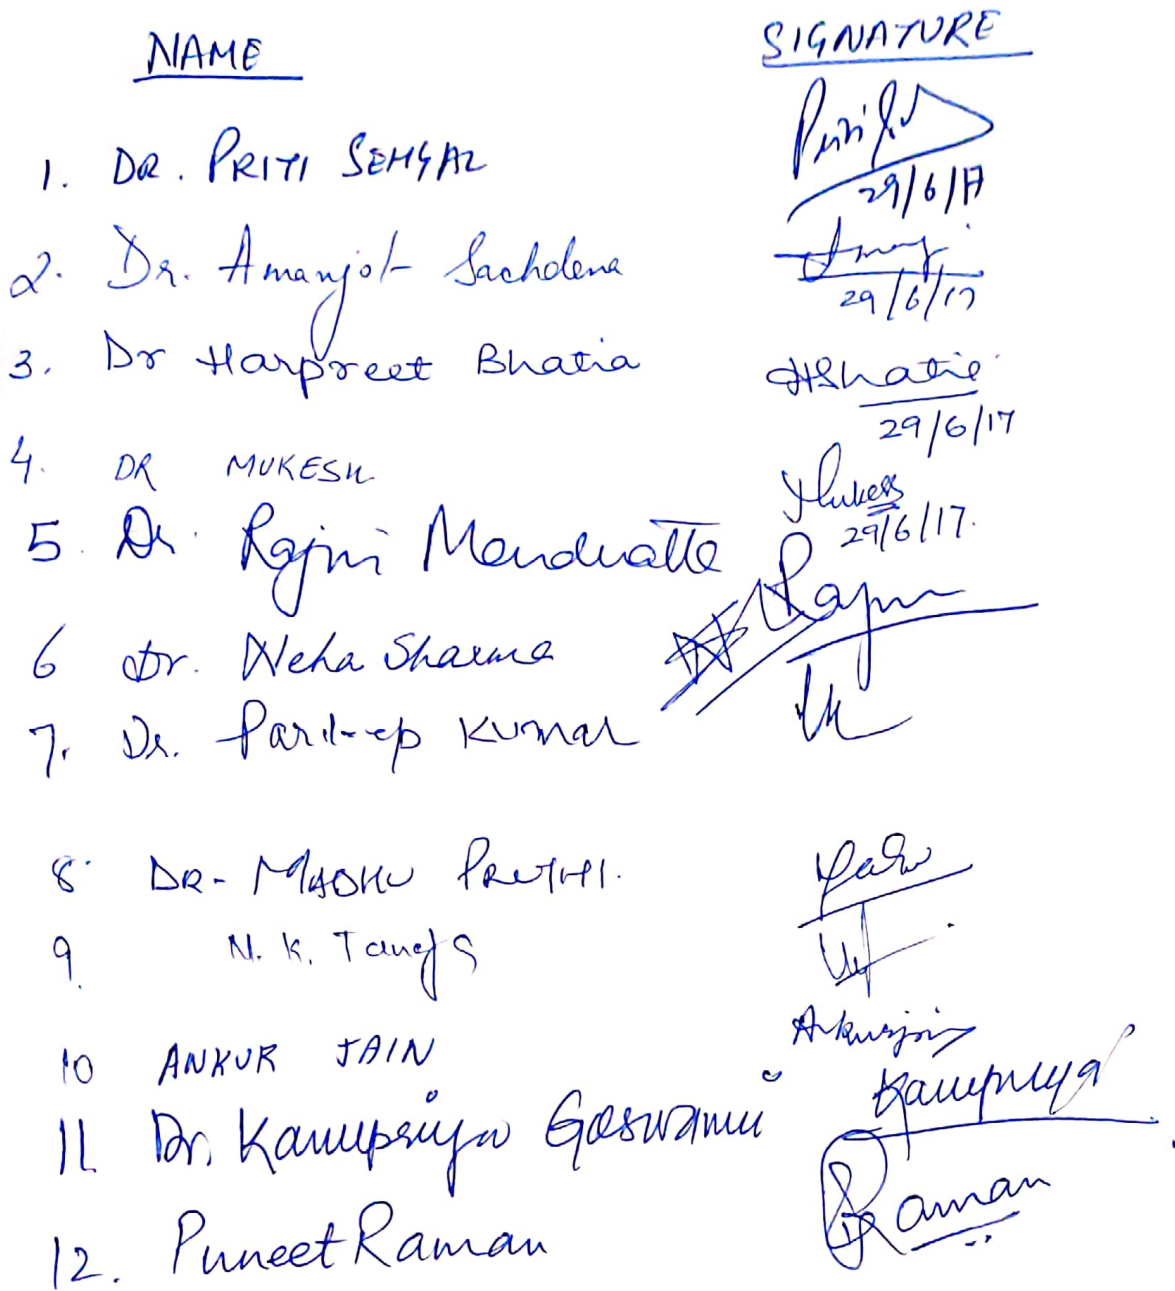 NAME SIGNATURE
1. DR. PRITI SEHGAL Priti
29/6/17
2. Dr. Amanjot Sachdeva
29/6/17
3. Dr Harpreet Bhatia HBhatia
29/6/17
4. DR MUKESH Mukesh
29/6/17.
5. Dr. Rajni Rajni
6 Dr. Neha Sharma
7. Dr. Pardeep Kumar
8. DR- MADHU PRUTHI.
9. N. K. Taneja
10 ANKUR JAIN Ankurjain
11 Dr. Kanupriya Goswami Kanupriya
12. Puneet Raman Raman